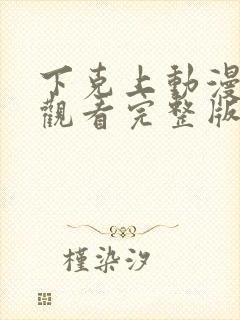 下克上動漫
觀看完整版
槿染汐